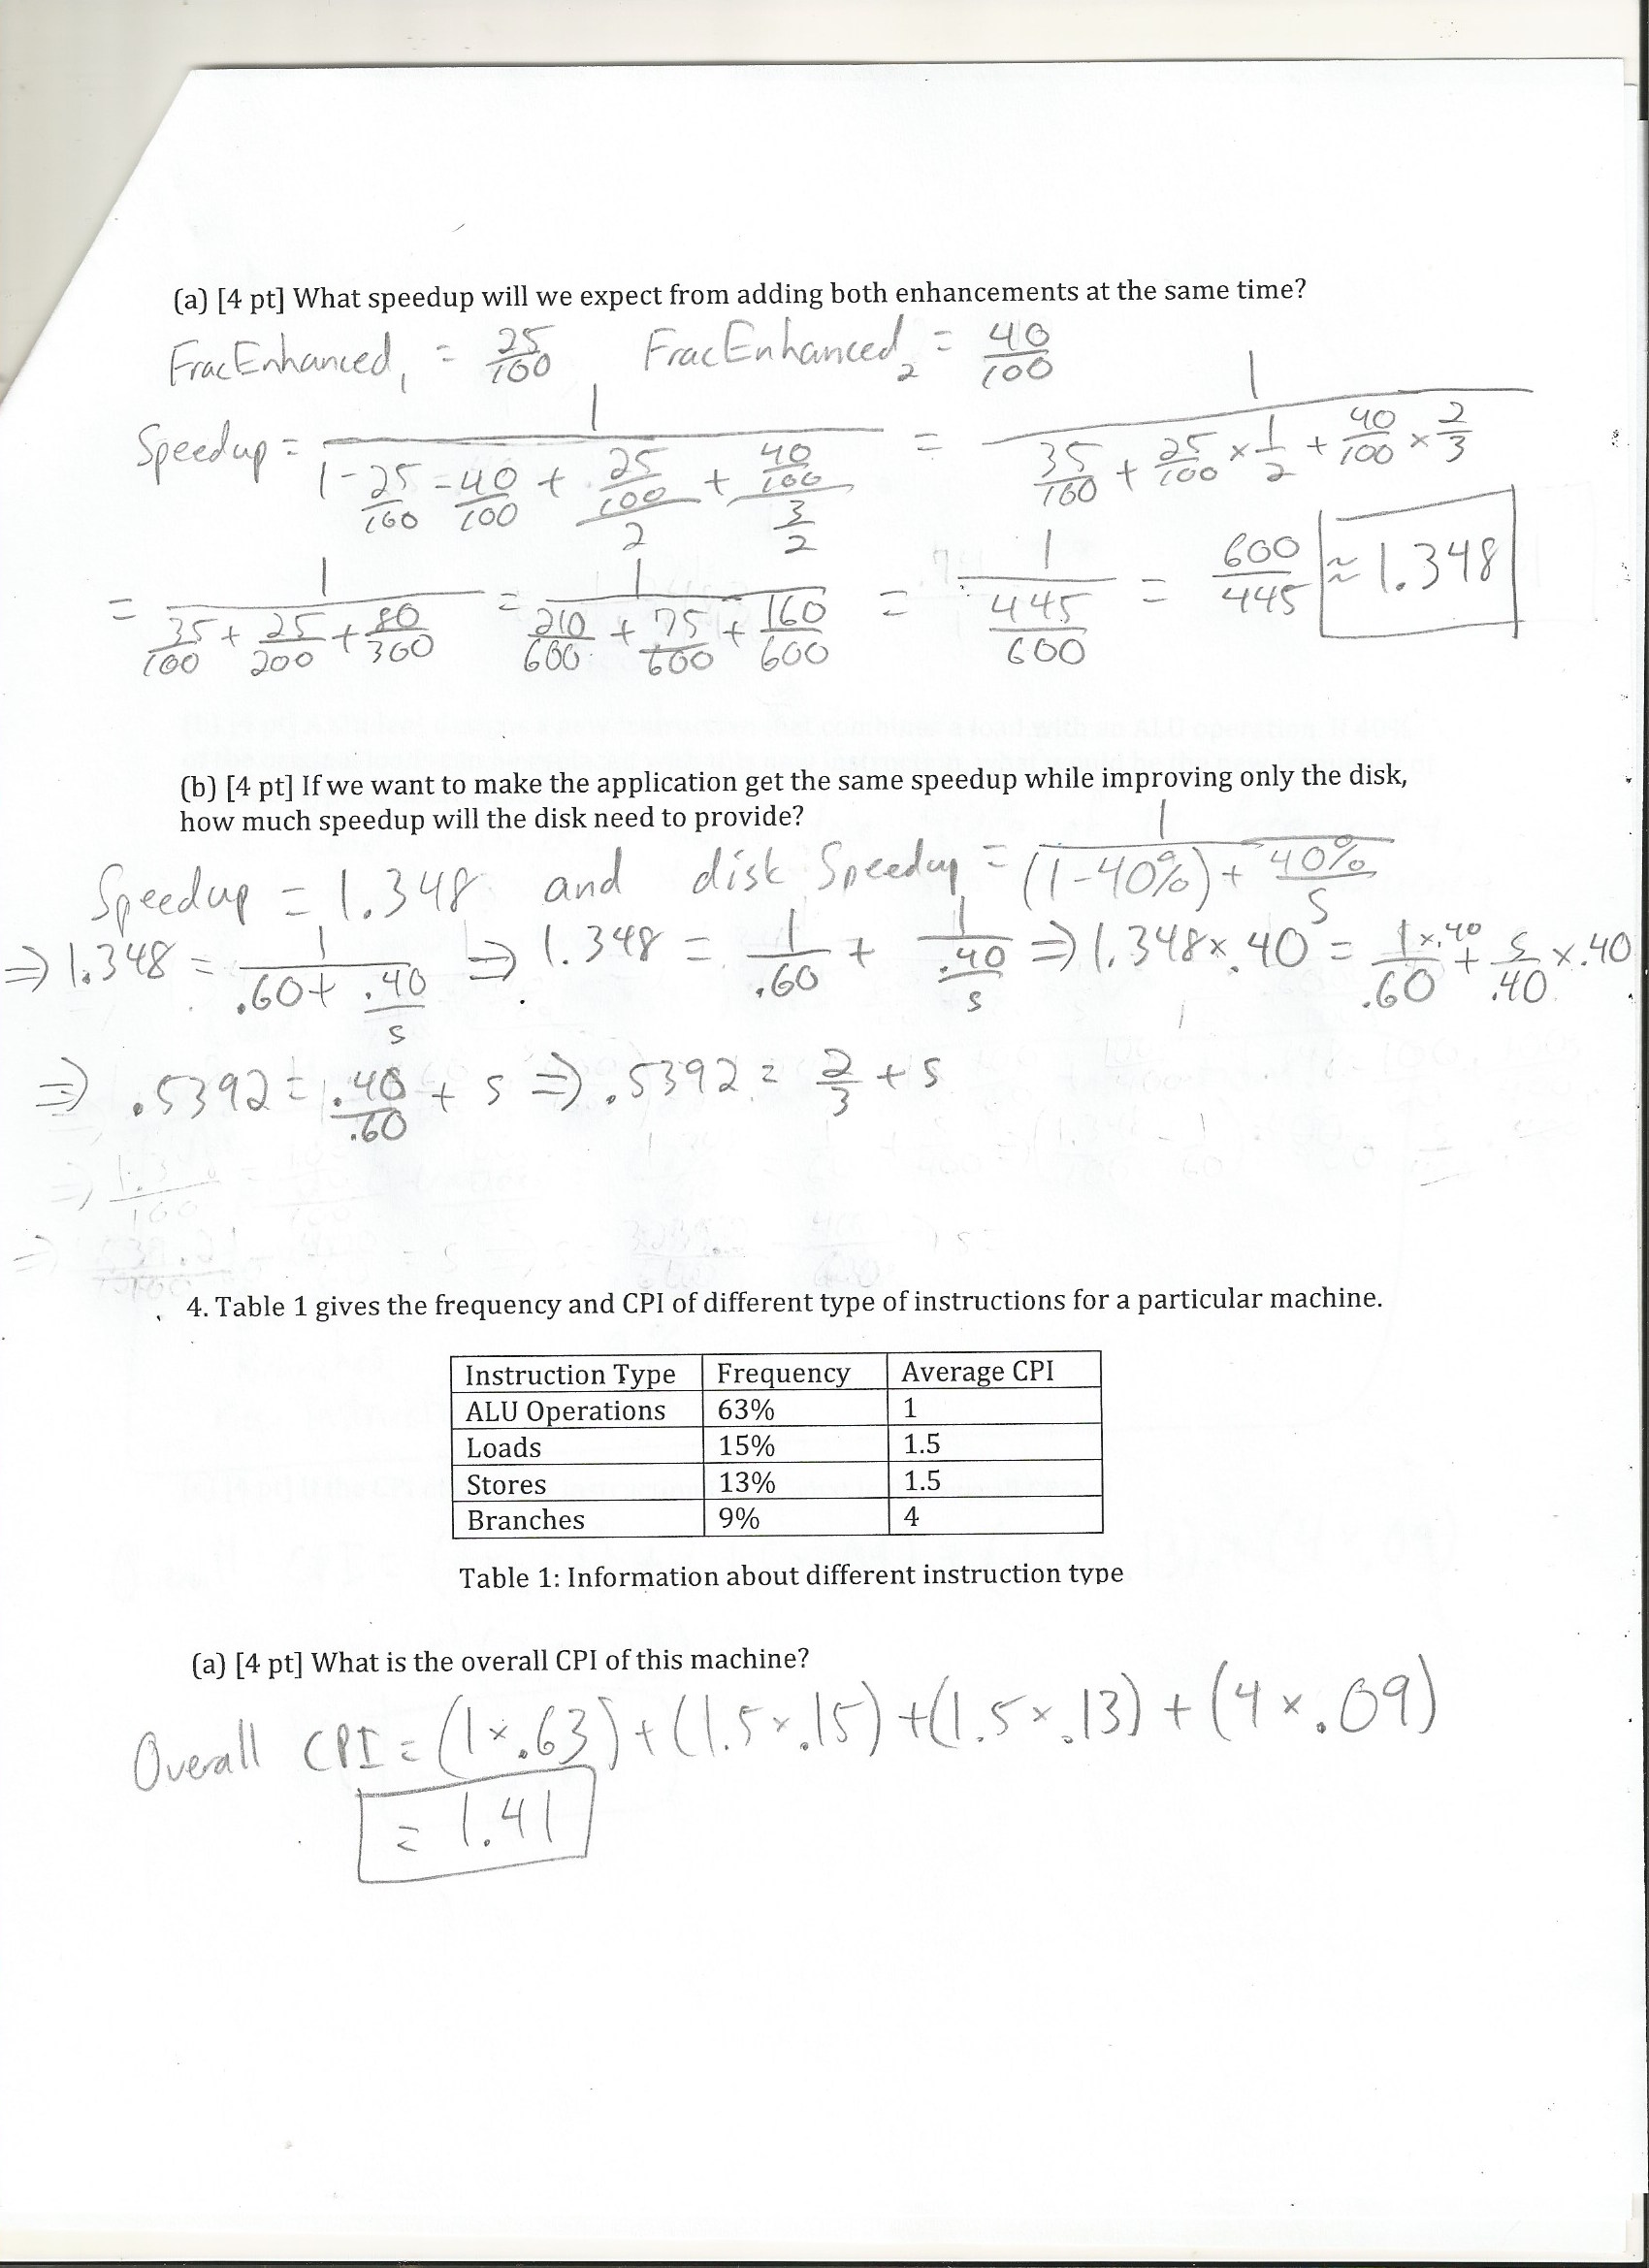 (a) [4 pt] What speedup will we expect from adding both enhancements at the same time?
FracEnhanced₁ = 25/100 FracEnhanced₂ = 40/100
Speedup = 1/(1 - 25/100 - 40/100 + (25/100)/2 + (40/100)/(3/2)) = 1/(35/100 + 25/100 × 1/2 + 40/100 × 2/3)
= 1/(35/100 + 25/200 + 80/300) = 1/(210/600 + 75/600 + 160/600) = 1/(445/600) = 600/445 ≈ 1.348
(b) [4 pt] If we want to make the application get the same speedup while improving only the disk,
how much speedup will the disk need to provide?
Speedup = 1.348 and disk Speedup = 1/((1-40%) + 40%/s)
⇒ 1.348 = 1/(.60 + .40/s) ⇒ 1.348 = 1/.60 + 1/(.40/s) ⇒ 1.348 × .40 = 1/.60 × .40 + s/.40 × .40
⇒ .5392 = .40/.60 + s ⇒ .5392 = 2/3 + s
4. Table 1 gives the frequency and CPI of different type of instructions for a particular machine.
Instruction Type Frequency Average CPI
ALU Operations 63% 1
Loads 15% 1.5
Stores 13% 1.5
Branches 9% 4
Table 1: Information about different instruction type
(a) [4 pt] What is the overall CPI of this machine?
Overall CPI = (1 × .63) + (1.5 × .15) + (1.5 × .13) + (4 × .09)
= 1.41